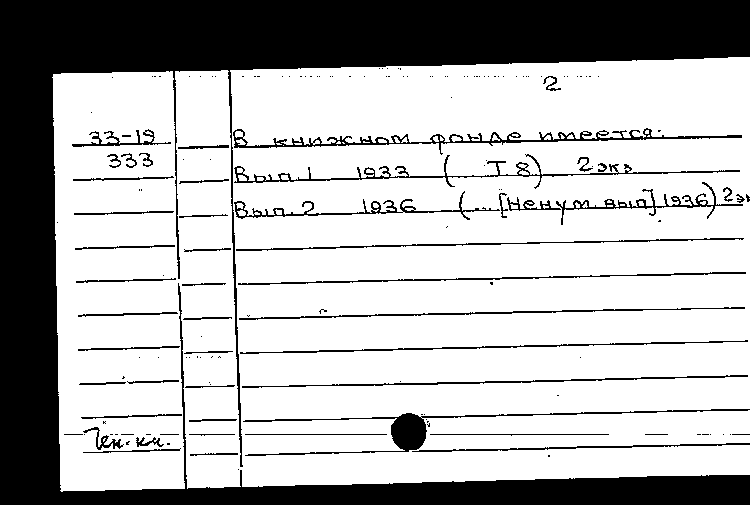 2
33-19 В книжном фонде имеется:
333
Вып. 1 1933 (... Т 8) 2 экз
Вып. 2 1936 (... [Ненум. вып] 1936) 2 эк
Ген. кн.